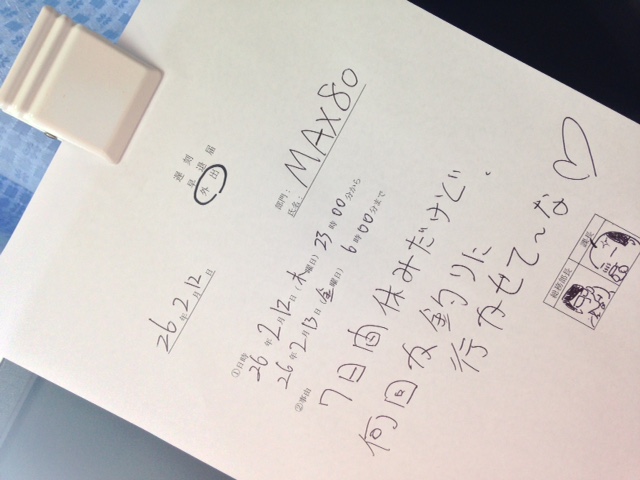 遅刻
早退届
外出
26年2月12日
部門：
氏名：MAX80
①日時
26年2月12日（木曜日）23時00分から
26年2月13日（金曜日）6時00分まで
②事由
7日間休みだけど、
何回か釣りに
行かせて〜な♡
総務部長 課長